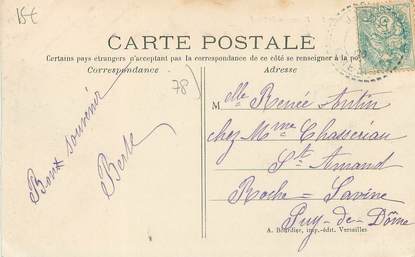 15€
CARTE POSTALE
Certains pays étrangers n'acceptant pas la correspondance de ce côté se renseigner à la poste
Correspondance
Adresse
78)
Bons souvenir
Berthe
Melle Renée Antin
chez Mme Chassériau
St Amand
Roche = Savine
Puy-de-Dôme
A. Bourdier, imp.-édit. Versailles